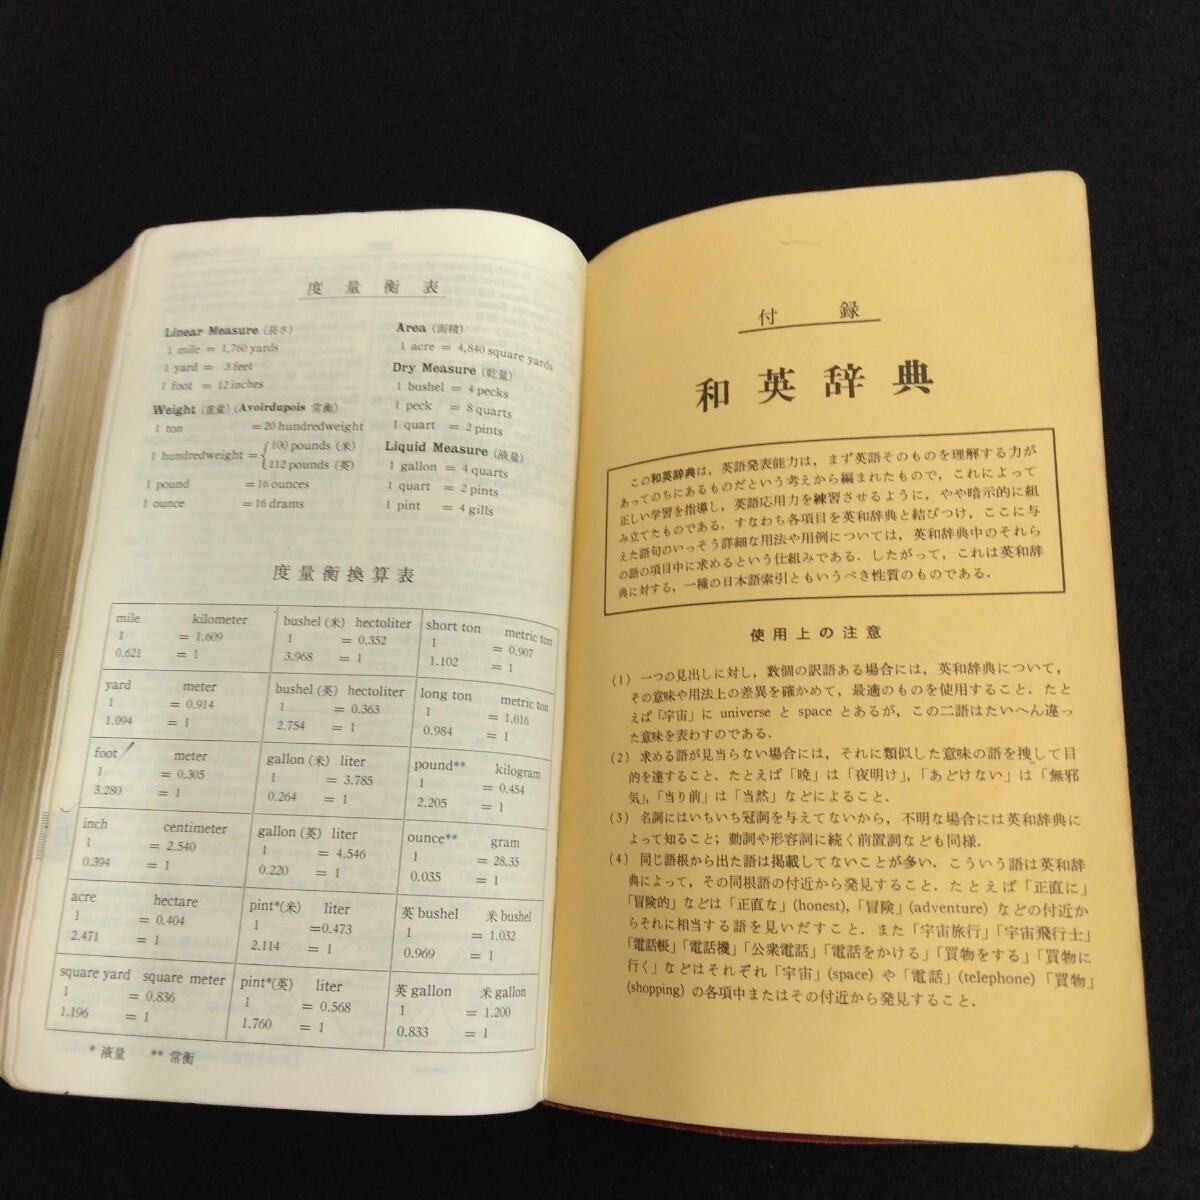 度量衡表
Linear Measure (長さ)
1 mile = 1,760 yards
1 yard = 3 feet
1 foot = 12 inches
Weight (重量) (Avoirdupois 常衡)
1 ton = 20 hundredweight
1 hundredweight = {100 pounds (米)
112 pounds (英)
1 pound = 16 ounces
1 ounce = 16 drams
Area (面積)
1 acre = 4,840 square yards
Dry Measure (乾量)
1 bushel = 4 pecks
1 peck = 8 quarts
1 quart = 2 pints
Liquid Measure (液量)
1 gallon = 4 quarts
1 quart = 2 pints
1 pint = 4 gills
度量衡換算表
mile kilometer
1 = 1.609
0.621 = 1
yard meter
1 = 0.914
1.094 = 1
foot meter
1 = 0.305
3.280 = 1
inch centimeter
1 = 2.540
0.394 = 1
acre hectare
1 = 0.404
2.471 = 1
square yard square meter
1 = 0.836
1.196 = 1
bushel (米) hectoliter
1 = 0.352
3.968 = 1
bushel (英) hectoliter
1 = 0.363
2.754 = 1
gallon (米) liter
1 = 3.785
0.264 = 1
gallon (英) liter
1 = 4.546
0.220 = 1
pint*(米) liter
1 =0.473
2.114 = 1
pint*(英) liter
1 = 0.568
1.760 = 1
short ton metric ton
1 = 0.907
1.102 = 1
long ton metric ton
1 = 1.016
0.984 = 1
pound** kilogram
1 = 0.454
2.205 = 1
ounce** gram
1 = 28.35
0.035 = 1
英 bushel 米 bushel
1 = 1.032
0.969 = 1
英 gallon 米 gallon
1 = 1.200
0.833 = 1
* 液量 ** 常衡
付録
和英辞典
この和英辞典は，英語発表能力は，まず英語そのものを理解する力が
あってのちにあるものだという考えから編まれたもので，これによって
正しい学習を指導し，英語応用力を練習させるように，やや暗示的に組
み立てたものである．すなわち各項目を英和辞典と結びつけ，ここに与
えた語句のいっそう詳細な用法や用例については，英和辞典中のそれら
の語の項目中に求めるという仕組みである．したがって，これは英和辞
典に対する，一種の日本語索引ともいうべき性質のものである．
使用上の注意
(1) 一つの見出しに対し，数個の訳語ある場合には，英和辞典について，
その意味や用法上の差異を確かめて，最適のものを使用すること．たと
えば「宇宙」に universe と space とあるが，この二語はたいへん違っ
た意味を表わすのである．
(2) 求める語が見当らない場合には，それに類似した意味の語を捜して目
的を達すること．たとえば「暁」は「夜明け」，「あどけない」は「無邪
気」，「当り前」は「当然」などによること．
(3) 名詞にはいちいち冠詞を与えてないから，不明な場合には英和辞典に
よって知ること；動詞や形容詞に続く前置詞なども同様．
(4) 同じ語根から出た語は掲載してないことが多い．こういう語は英和辞
典によって，その同根語の付近から発見すること．たとえば「正直に」
「冒険的」などは「正直な」(honest)，「冒険」(adventure) などの付近か
らそれに相当する語を見いだすこと．また「宇宙旅行」「宇宙飛行士」
「電話帳」「電話機」「公衆電話」「電話をかける」「買物をする」「買物に
行く」などはそれぞれ「宇宙」(space) や「電話」(telephone)「買物」
(shopping) の各項中またはその付近から発見すること．